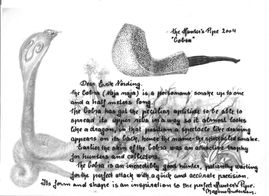 The Hunter's Pipe 2004
"Cobra"
Dear Erik Nording.
The Cobra (Naja naja) is a poisonous snake up to one
and a half meters long.
The Cobra has got the peculiar aptitude to be able to
spread its upper ribs in a way so it almost looks
like a dragon, in that position a spectacle like drawing
appears on its back, hence the name the spectacled snake.
Earlier the skin of the Cobra was an attractive trophy
for hunters and collectors.
The Cobra is an incredibly good hunter, patiently waiting
for the perfect attack with a quick and accurate precision.
Its form and shape is an inspiration to the perfect Hunter's Pipe.